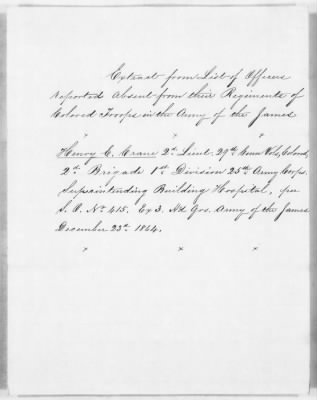 Extract from List of Officers
reported Absent from their Regiments of
Colored Troops in the Army of the James
x x x
Henry C. Crane 2d Lieut. 29th Conn Vols, Colored,
2d Brigade 1st Division 25th Army Corps.
Superintending Building Hospital, per
S. O. No 415. Ex 3. Hd Qrs. Army of the James
December 23d 1864.
x x x